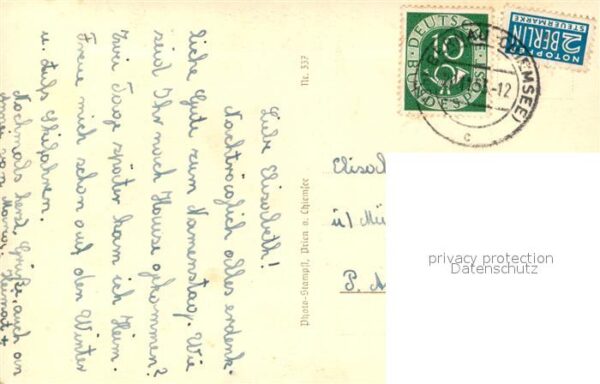 Liebe Elisabeth!
Nachträglich alles erdenk-
liche Gute zum Namenstag. Wie
seid Ihr nach Hause gekommen?
Zwei Tage später kam ich Heim.
Freue mich schon auf den Winter
u. aufs Skifahren.
Nochmals herzl. Grüße, auch an
Nr. 337
Photo-Stampfl, Prien a. Chiemsee
DEUTSCHE
BUNDESPOST
10
NOTOPFER
2 BERLIN
STEUERMARKE
CHIEMSEE)
-12
c
Elisab
ü/ Mü
P. A
privacy protection
Datenschutz